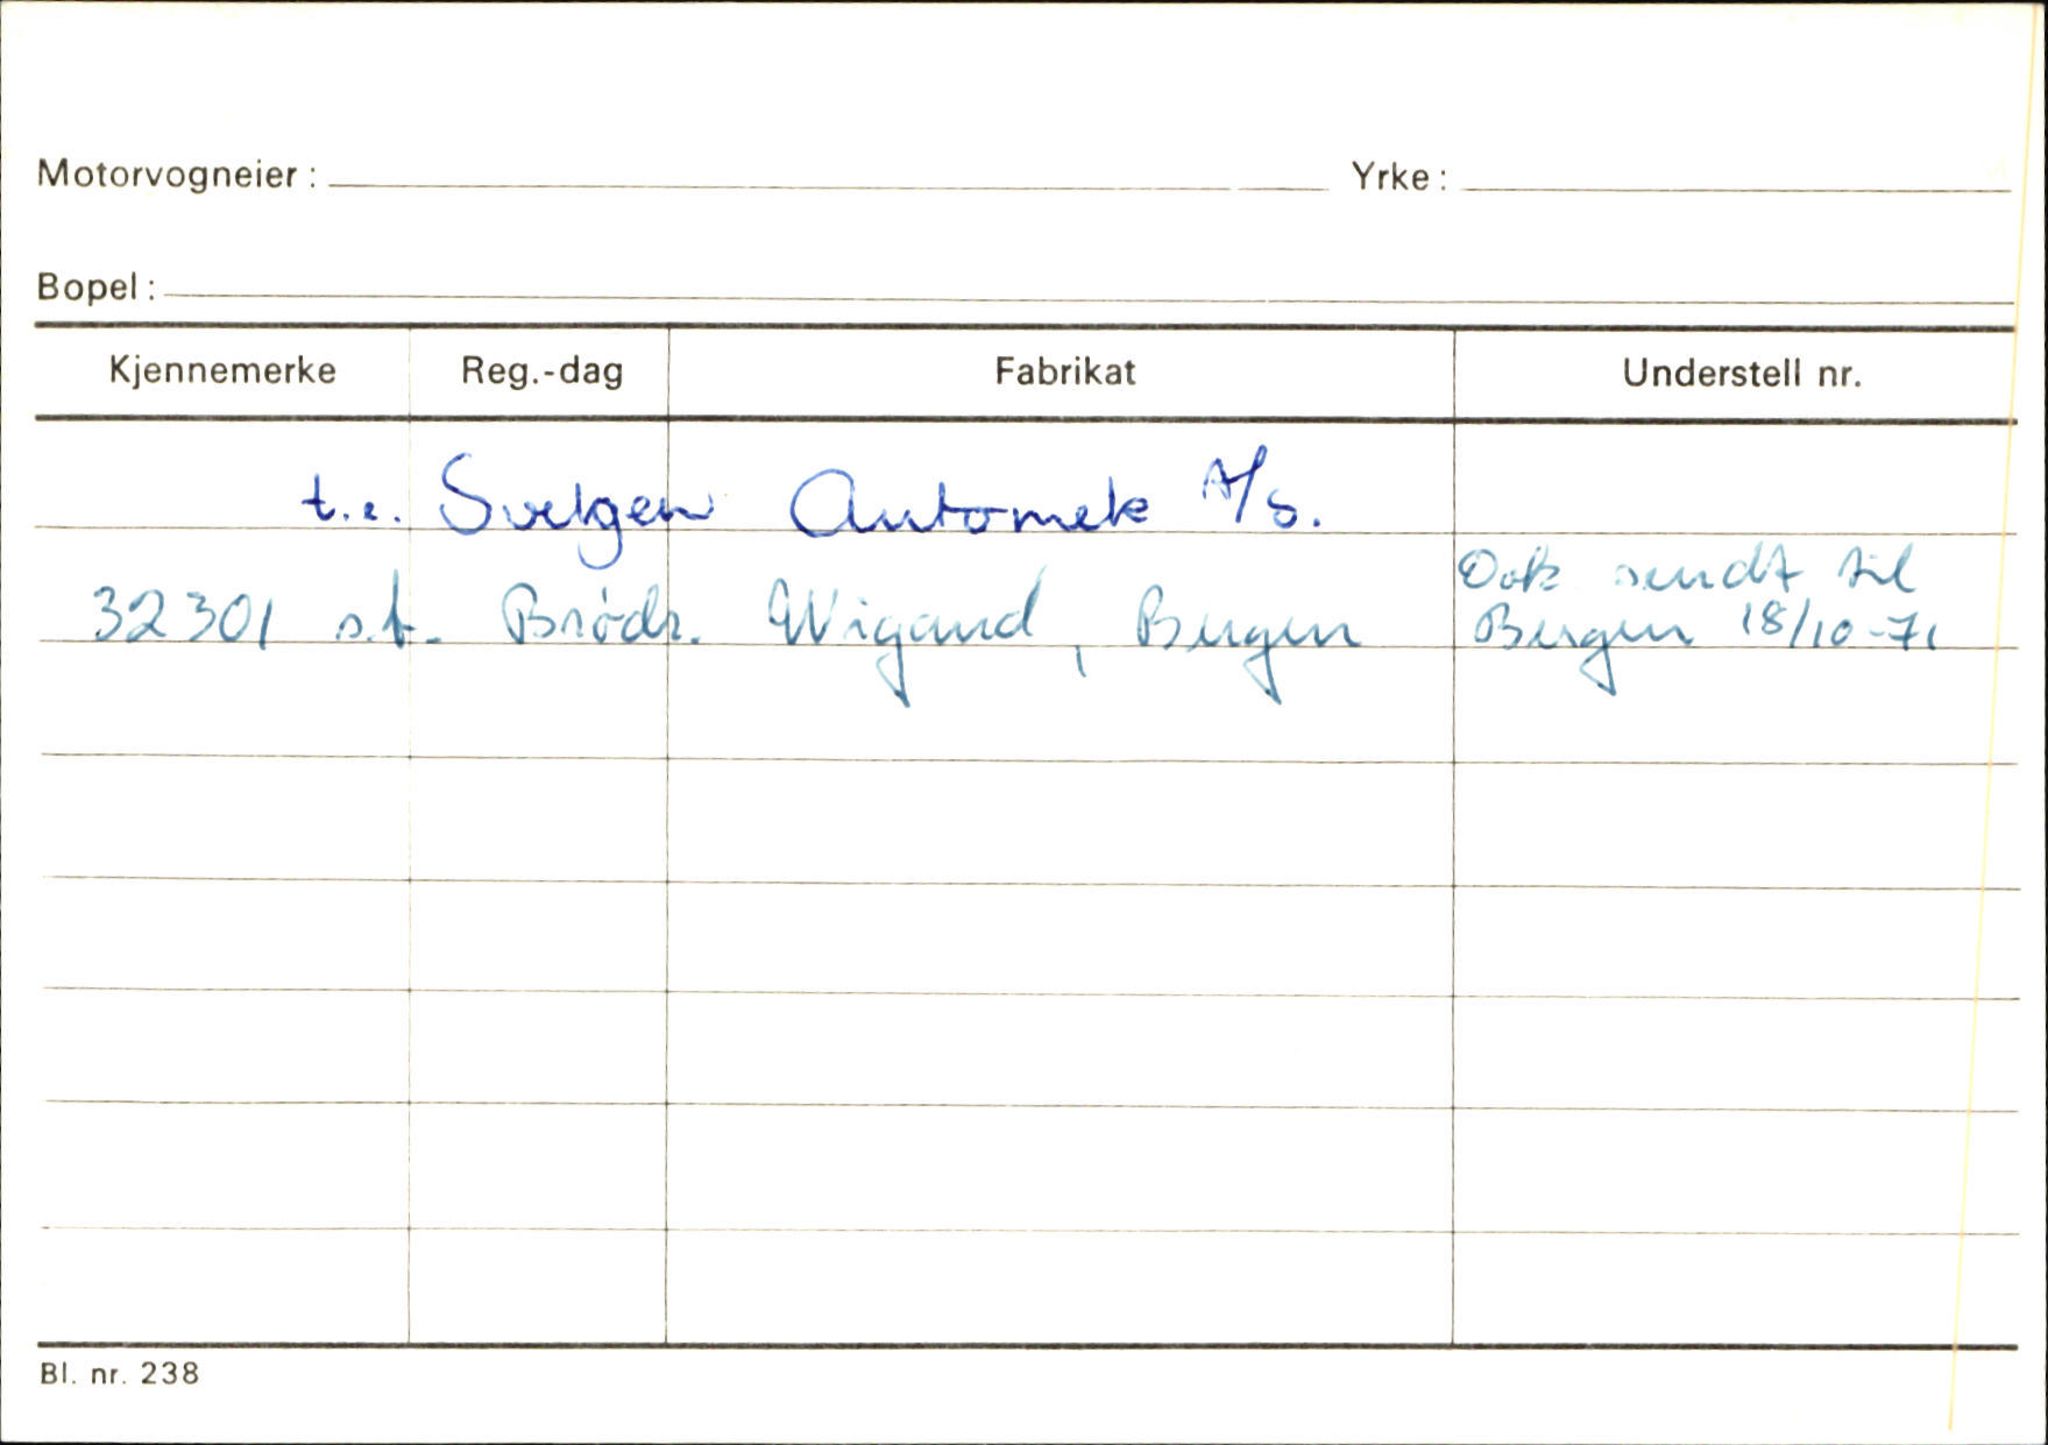 Motorvogneier: Yrke:
Bopel:
Kjennemerke Reg.-dag Fabrikat Understell nr.
t.e. Svelgen Automek A/S.
Dok sendt til
32301 s.t. Brødr. Wigand, Bergen Bergen 18/10-71
Bl. nr. 238